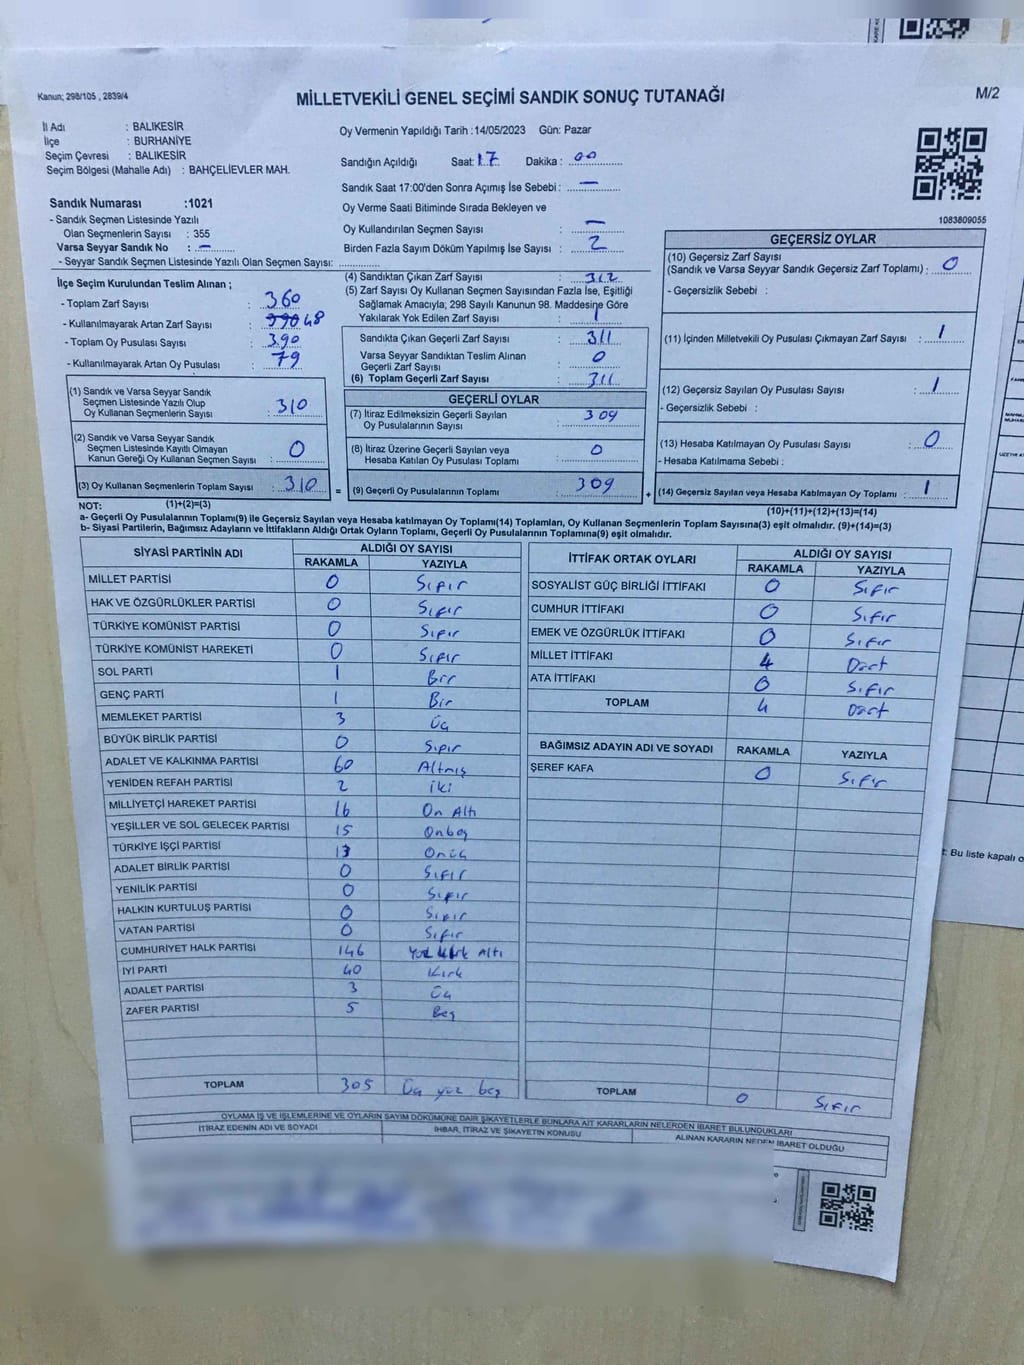 Kanun; 298/105 , 2839/4
MİLLETVEKİLİ GENEL SEÇİMİ SANDIK SONUÇ TUTANAĞI
M/2
İl Adı : BALIKESİR
İlçe : BURHANİYE
Seçim Çevresi : BALIKESİR
Seçim Bölgesi (Mahalle Adı) : BAHÇELİEVLER MAH.
Sandık Numarası :1021
- Sandık Seçmen Listesinde Yazılı
Olan Seçmenlerin Sayısı : 355
Varsa Seyyar Sandık No : –
- Seyyar Sandık Seçmen Listesinde Yazılı Olan Seçmen Sayısı:
Oy Vermenin Yapıldığı Tarih :14/05/2023 Gün: Pazar
Sandığın Açıldığı Saat: 17 Dakika : 00
Sandık Saat 17:00'den Sonra Açımış İse Sebebi : –
Oy Verme Saati Bitiminde Sırada Bekleyen ve
Oy Kullandırılan Seçmen Sayısı : –
Birden Fazla Sayım Döküm Yapılmış İse Sayısı : 2
1083809055
İlçe Seçim Kurulundan Teslim Alınan ;
- Toplam Zarf Sayısı : 360
- Kullanılmayarak Artan Zarf Sayısı : 48
- Toplam Oy Pusulası Sayısı : 390
- Kullanılmayarak Artan Oy Pusulası : 79
(1) Sandık ve Varsa Seyyar Sandık
Seçmen Listesinde Yazılı Olup
Oy Kullanan Seçmenlerin Sayısı : 310
(2) Sandık ve Varsa Seyyar Sandık
Seçmen Listesinde Kayıtlı Olmayan
Kanun Gereği Oy Kullanan Seçmen Sayısı : 0
(3) Oy Kullanan Seçmenlerin Toplam Sayısı : 310
(4) Sandıktan Çıkan Zarf Sayısı : 312
(5) Zarf Sayısı Oy Kullanan Seçmen Sayısından Fazla İse, Eşitliği
Sağlamak Amacıyla; 298 Sayılı Kanunun 98. Maddesine Göre
Yakılarak Yok Edilen Zarf Sayısı : 1
Sandıkta Çıkan Geçerli Zarf Sayısı : 311
Varsa Seyyar Sandıktan Teslim Alınan
Geçerli Zarf Sayısı : 0
(6) Toplam Geçerli Zarf Sayısı : 311
GEÇERLİ OYLAR
(7) İtiraz Edilmeksizin Geçerli Sayılan
Oy Pusulalarının Sayısı : 309
(8) İtiraz Üzerine Geçerli Sayılan veya
Hesaba Katılan Oy Pusulası Toplamı : 0
= (9) Geçerli Oy Pusulalarının Toplamı : 309
GEÇERSİZ OYLAR
(10) Geçersiz Zarf Sayısı
(Sandık ve Varsa Seyyar Sandık Geçersiz Zarf Toplamı) : 0
- Geçersizlik Sebebi :
(11) İçinden Milletvekili Oy Pusulası Çıkmayan Zarf Sayısı : 1
(12) Geçersiz Sayılan Oy Pusulası Sayısı : 1
- Geçersizlik Sebebi :
(13) Hesaba Katılmayan Oy Pusulası Sayısı : 0
- Hesaba Katılmama Sebebi :
+ (14) Geçersiz Sayılan veya Hesaba Katılmayan Oy Toplamı : 1
NOT: (1)+(2)=(3) (10)+(11)+(12)+(13)=(14)
a- Geçerli Oy Pusulalarının Toplamı(9) ile Geçersiz Sayılan veya Hesaba katılmayan Oy Toplamı(14) Toplamları, Oy Kullanan Seçmenlerin Toplam Sayısına(3) eşit olmalıdır. (9)+(14)=(3)
b- Siyasi Partilerin, Bağımsız Adayların ve İttifakların Aldığı Ortak Oyların Toplamı, Geçerli Oy Pusulalarının Toplamına(9) eşit olmalıdır.
SİYASİ PARTİNİN ADI ALDIĞI OY SAYISI
RAKAMLA YAZIYLA
MİLLET PARTİSİ 0 Sıfır
HAK VE ÖZGÜRLÜKLER PARTİSİ 0 Sıfır
TÜRKİYE KOMÜNİST PARTİSİ 0 Sıfır
TÜRKİYE KOMÜNİST HAREKETİ 0 Sıfır
SOL PARTİ 1 Bir
GENÇ PARTİ 1 Bir
MEMLEKET PARTİSİ 3 Üç
BÜYÜK BİRLİK PARTİSİ 0 Sıfır
ADALET VE KALKINMA PARTİSİ 60 Altmış
YENİDEN REFAH PARTİSİ 2 iki
MİLLİYETÇİ HAREKET PARTİSİ 16 On Altı
YEŞİLLER VE SOL GELECEK PARTİSİ 15 Onbeş
TÜRKİYE İŞÇİ PARTİSİ 13 Onüç
ADALET BİRLİK PARTİSİ 0 Sıfır
YENİLİK PARTİSİ 0 Sıfır
HALKIN KURTULUŞ PARTİSİ 0 Sıfır
VATAN PARTİSİ 0 Sıfır
CUMHURİYET HALK PARTİSİ 146 Yüz kırk Altı
İYİ PARTİ 40 Kırk
ADALET PARTİSİ 3 Üç
ZAFER PARTİSİ 5 Beş
TOPLAM 305 Üç yüz beş
İTTİFAK ORTAK OYLARI ALDIĞI OY SAYISI
RAKAMLA YAZIYLA
SOSYALİST GÜÇ BİRLİĞİ İTTİFAKI 0 Sıfır
CUMHUR İTTİFAKI 0 Sıfır
EMEK VE ÖZGÜRLÜK İTTİFAKI 0 Sıfır
MİLLET İTTİFAKI 4 Dört
ATA İTTİFAKI 0 Sıfır
TOPLAM 4 Dört
BAĞIMSIZ ADAYIN ADI VE SOYADI RAKAMLA YAZIYLA
ŞEREF KAFA 0 Sıfır
TOPLAM 0 Sıfır
OYLAMA İŞ VE İŞLEMLERİNE VE OYLARIN SAYIM DÖKÜMÜNE DAİR ŞİKAYETLERLE BUNLARA AİT KARARLARIN NELERDEN İBARET BULUNDUKLARI
İTİRAZ EDENİN ADI VE SOYADI İHBAR, İTİRAZ VE ŞİKAYETİN KONUSU ALINAN KARARIN NEDEN İBARET OLDUĞU
: Bu liste kapalı o